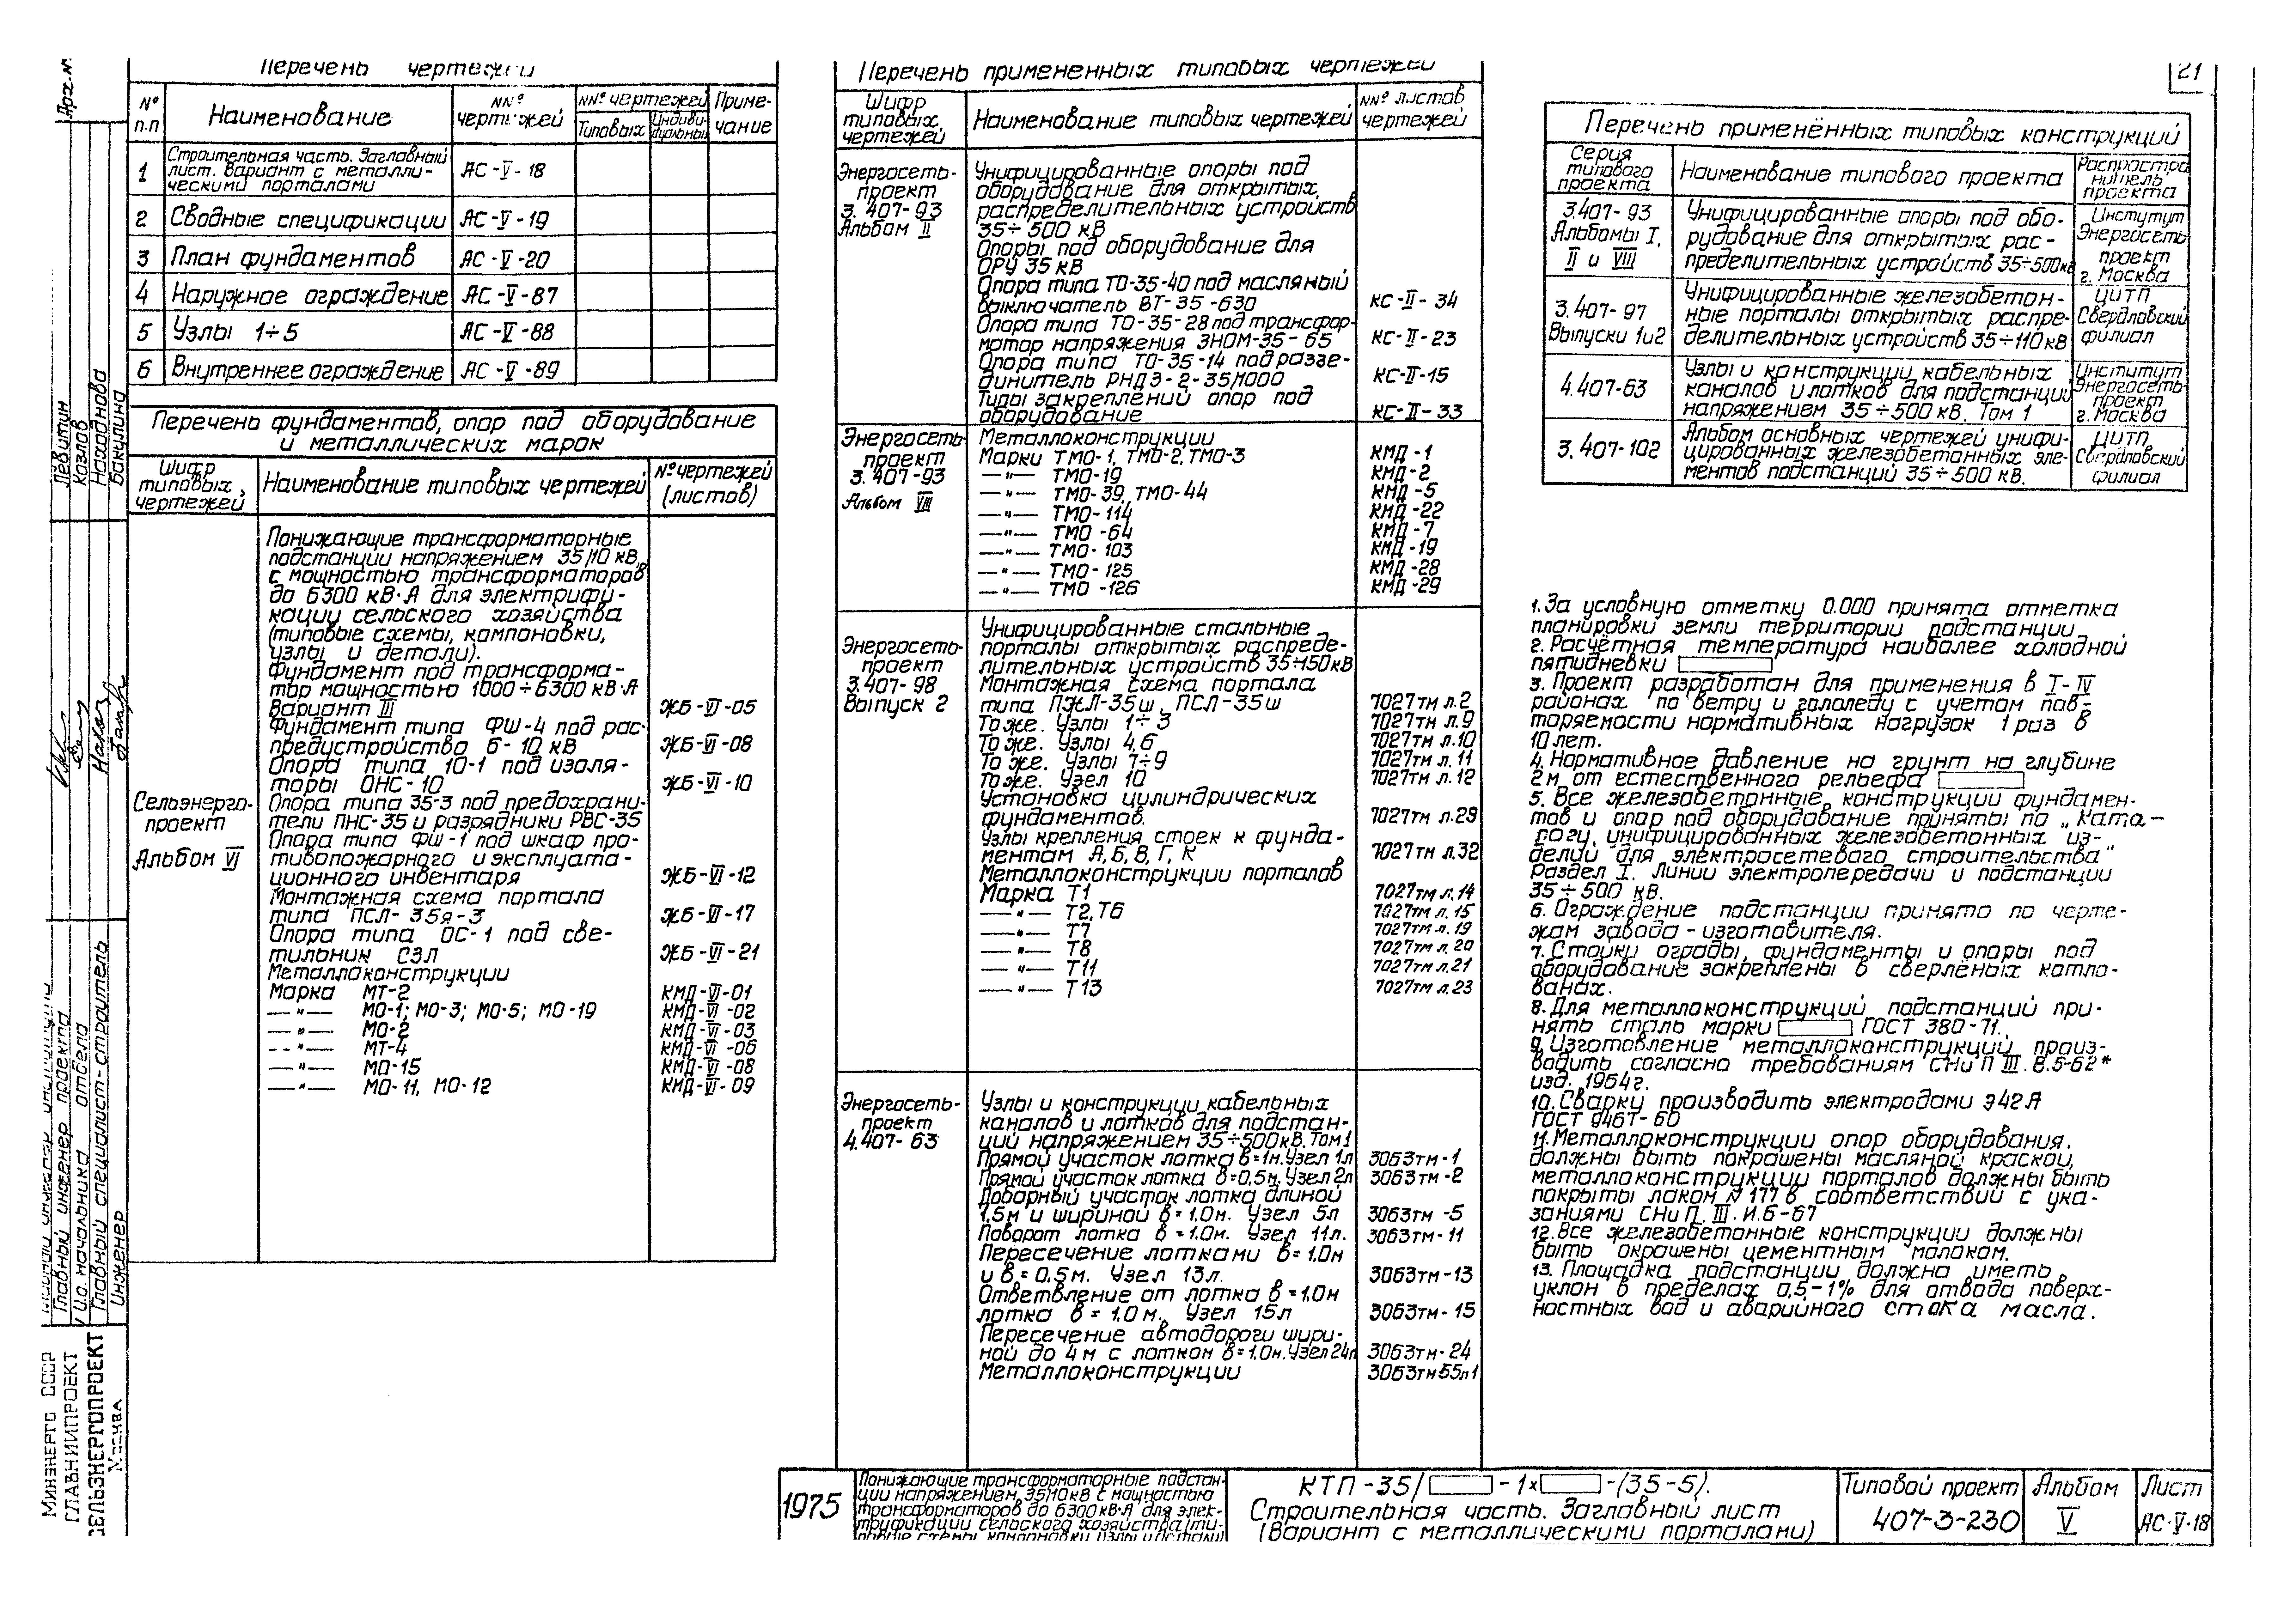 21
Перечень чертежей
№ п.п
Наименование
NNº чертежей
NNº чертежей
Типовых
Индивидуальных
Примечание
1
Строительная часть. Заглавный
лист. Вариант с металли-
ческими порталами
АС-V-18
2 Сводные спецификации АС-V-19
3 План фундаментов АС-V-20
4 Наружное ограждение АС-V-87
5 Узлы 1÷5 АС-V-88
6 Внутреннее ограждение АС-V-89
Перечень фундаментов, опор под оборудование
и металлических марок
Шифр
типовых
чертежей
Наименование типовых чертежей
Nº чертежей
(листов)
Сельэнерго-
проект
Альбом VI
Понижающие трансформаторные
подстанции напряжением 35/10 кВ,
с мощностью трансформаторов
до 6300 кВ·А для электрифи-
кации сельского хозяйства
(типовые схемы, компоновки,
узлы и детали).
Фундамент под трансформа-
тор мощностью 1000÷6300 кВ·А
Вариант III ЖБ-VI-05
Фундамент типа ФШ-4 под рас-
предустройство 6-10 кВ ЖБ-VI-08
Опора типа 10-1 под изоля-
торы ОНС-10 ЖБ-VI-10
Опора типа 35-3 под предохрани-
тели ПНС-35 и разрядники РВС-35
Опора типа ФШ-1 под шкаф про-
тивопожарного и эксплуата-
ционного инвентаря ЖБ-VI-12
Монтажная схема портала
типа ПСЛ-35я-3 ЖБ-VI-17
Опора типа ОС-1 под све-
тильник СЗЛ ЖБ-VI-21
Металлоконструкции
Марка МТ-2 КМД-VI-01
—"— МО-1; МО-3; МО-5; МО-19 КМД-VI-02
—"— МО-2 КМД-VI-03
—"— МТ-4 КМД-VI-06
—"— МО-15 КМД-VI-08
—"— МО-11, МО-12 КМД-VI-09
Перечень примененных типовых чертежей
Шифр
типовых
чертежей
Наименование типовых чертежей
NNº листов
чертежей
Энергосеть-
проект
3.407-93
Альбом II
Унифицированные опоры под
оборудование для открытых
распределительных устройств
35÷500 кВ
Опоры под оборудование для
ОРУ 35 кВ
Опора типа ТО-35-40 под масляный
выключатель ВТ-35-630 КС-II-34
Опора типа ТО-35-28 под трансфор-
матор напряжения ЗНОМ-35-65 КС-II-23
Опора типа ТО-35-14 под разъе-
динитель РНДЗ-2-35/1000 КС-II-15
Типы закреплений опор под
оборудование КС-II-33
Энергосеть-
проект
3.407-93
Альбом VIII
Металлоконструкции
Марки ТМО-1, ТМО-2, ТМО-3 КМД-1
—"— ТМО-19 КМД-2
—"— ТМО-39, ТМО-44 КМД-5
—"— ТМО-114 КМД-22
—"— ТМО-64 КМД-7
—"— ТМО-103 КМД-19
—"— ТМО-125 КМД-28
—"— ТМО-126 КМД-29
Энергосеть-
проект
3.407-98
Выпуск 2
Унифицированные стальные
порталы открытых распреде-
лительных устройств 35÷150кВ
Монтажная схема портала
типа ПЖЛ-35ш, ПСЛ-35ш 7027тм л.2
То же. Узлы 1÷3 7027тм л.9
То же. Узлы 4,6 7027тм л.10
То же. Узлы 7÷9 7027тм л.11
То же. Узел 10 7027тм л.12
Установка цилиндрических
фундаментов. 7027тм л.29
Узлы крепления стоек к фунда-
ментам А, Б, В, Г, К 7027тм л.32
Металлоконструкции порталов
Марка Т1 7027тм л.14
—"— Т2, Т6 7027тм л.15
—"— Т7 7027тм л.19
—"— Т8 7027тм л.20
—"— Т11 7027тм л.21
—"— Т13 7027тм л.23
Энергосеть-
проект
4.407-63
Узлы и конструкции кабельных
каналов и лотков для подстан-
ций напряжением 35÷500кВ. Том 1
Прямой участок лотка в=1м. Узел 1л 3063тм-1
Прямой участок лотка в=0,5м. Узел 2л 3063тм-2
Доборный участок лотка длиной
1,5м и шириной в=1.0м. Узел 5л 3063тм-5
Поворот лотка в=1.0м. Узел 11л. 3063тм-11
Пересечение лотками в=1.0м
и в=0.5м. Узел 13л. 3063тм-13
Ответвление от лотка в=1.0м
лотка в=1.0м. Узел 15л 3063тм-15
Пересечение автодороги шири-
ной до 4м с лотком в=1.0м. Узел 24л 3063тм-24
Металлоконструкции 3063тм55л1
Перечень применённых типовых конструкций
Серия
типового
проекта
Наименование типового проекта
Распростра
нитель
проекта
3.407-93
Альбомы I,
II и VIII
Унифицированные опоры под обо-
рудование для открытых рас-
пределительных устройств 35÷500кВ
Инстутут
Энергосеть
проект
г. Москва
3.407-97
Выпуски 1и2
Унифицированные железобетон-
ные порталы открытых распре-
делительных устройств 35÷110кВ
ЦИТП
Свердловский
филиал
4.407-63
Узлы и конструкции кабельных
каналов и лотков для подстанций
напряжением 35÷500 кВ. Том 1
Институт
Энергосеть-
проект
г. Москва
3.407-102
Альбом основных чертежей унифи-
цированных железобетонных эле-
ментов подстанций 35÷500 кВ.
ЦИТП
Свердловский
филиал
1. За условную отметку 0.000 принята отметка
планировки земли территории подстанции
2. Расчётная температура наиболее холодной
пятидневки
3. Проект разработан для применения в I-IV
районах по ветру и гололеду с учетом пов-
торяемости нормативных нагрузок 1 раз в
10 лет.
4. Нормативное давление на грунт на глубине
2м от естественного рельефа
5. Все железобетонные конструкции фундамен-
тов и опор под оборудование приняты по „Ката-
логу унифицированных железобетонных из-
делий для электросетевого строительства"
Раздел I. Линии электропередачи и подстанции
35÷500 кВ.
6. Ограждение подстанции принято по черте-
жам завода-изготовителя.
7. Стойки ограды, фундаменты и опоры под
оборудование закреплены в сверлёных котло-
ванах.
8. Для металлоконструкций подстанций при-
нять сталь марки ГОСТ 380-71.
9. Изготовление металлоконструкций произ-
водить согласно требованиям СНиП III.В.5-62*
изд. 1964г.
10. Сварку производить электродами Э42А
ГОСТ 9467-60
11. Металлоконструкции опор оборудования.
должны быть покрашены масляной краской,
металлоконструкции порталов должны быть
покрыты лаком N 177 в соответствий с ука-
заниями СНиП. III. И.6-67
12. Все железобетонные конструкции должны
быть окрашены цементным молоком.
13. Площадка подстанции должна иметь
уклон в пределах 0,5-1% для отвода поверх-
ностных вод и аварийного стока масла.
1975
Понижающие трансформаторные подстан-
ции напряжением 35/10кВ с мощностью
трансформаторов до 6300 кВ·А для элек-
трификации сельского хозяйства (ти-
повые схемы, компоновки узлы и детали)
КТП-35/ -1× -(35-5).
Строительная часть. Заглавный лист
(Вариант с металлическими порталами)
Типовой проект
407-3-230
Альбом
V
Лист
АС-V-18
Арх.№
Левитин
Козлов
Находнова
Бакулина
Главный инженер института
Главный инженер проекта
И.о. начальника отдела
Главный специалист-строитель
Инженер
Минэнерго СССР
ГЛАВНИИПРОЕКТ
СЕЛЬЭНЕРГОПРОЕКТ
Москва